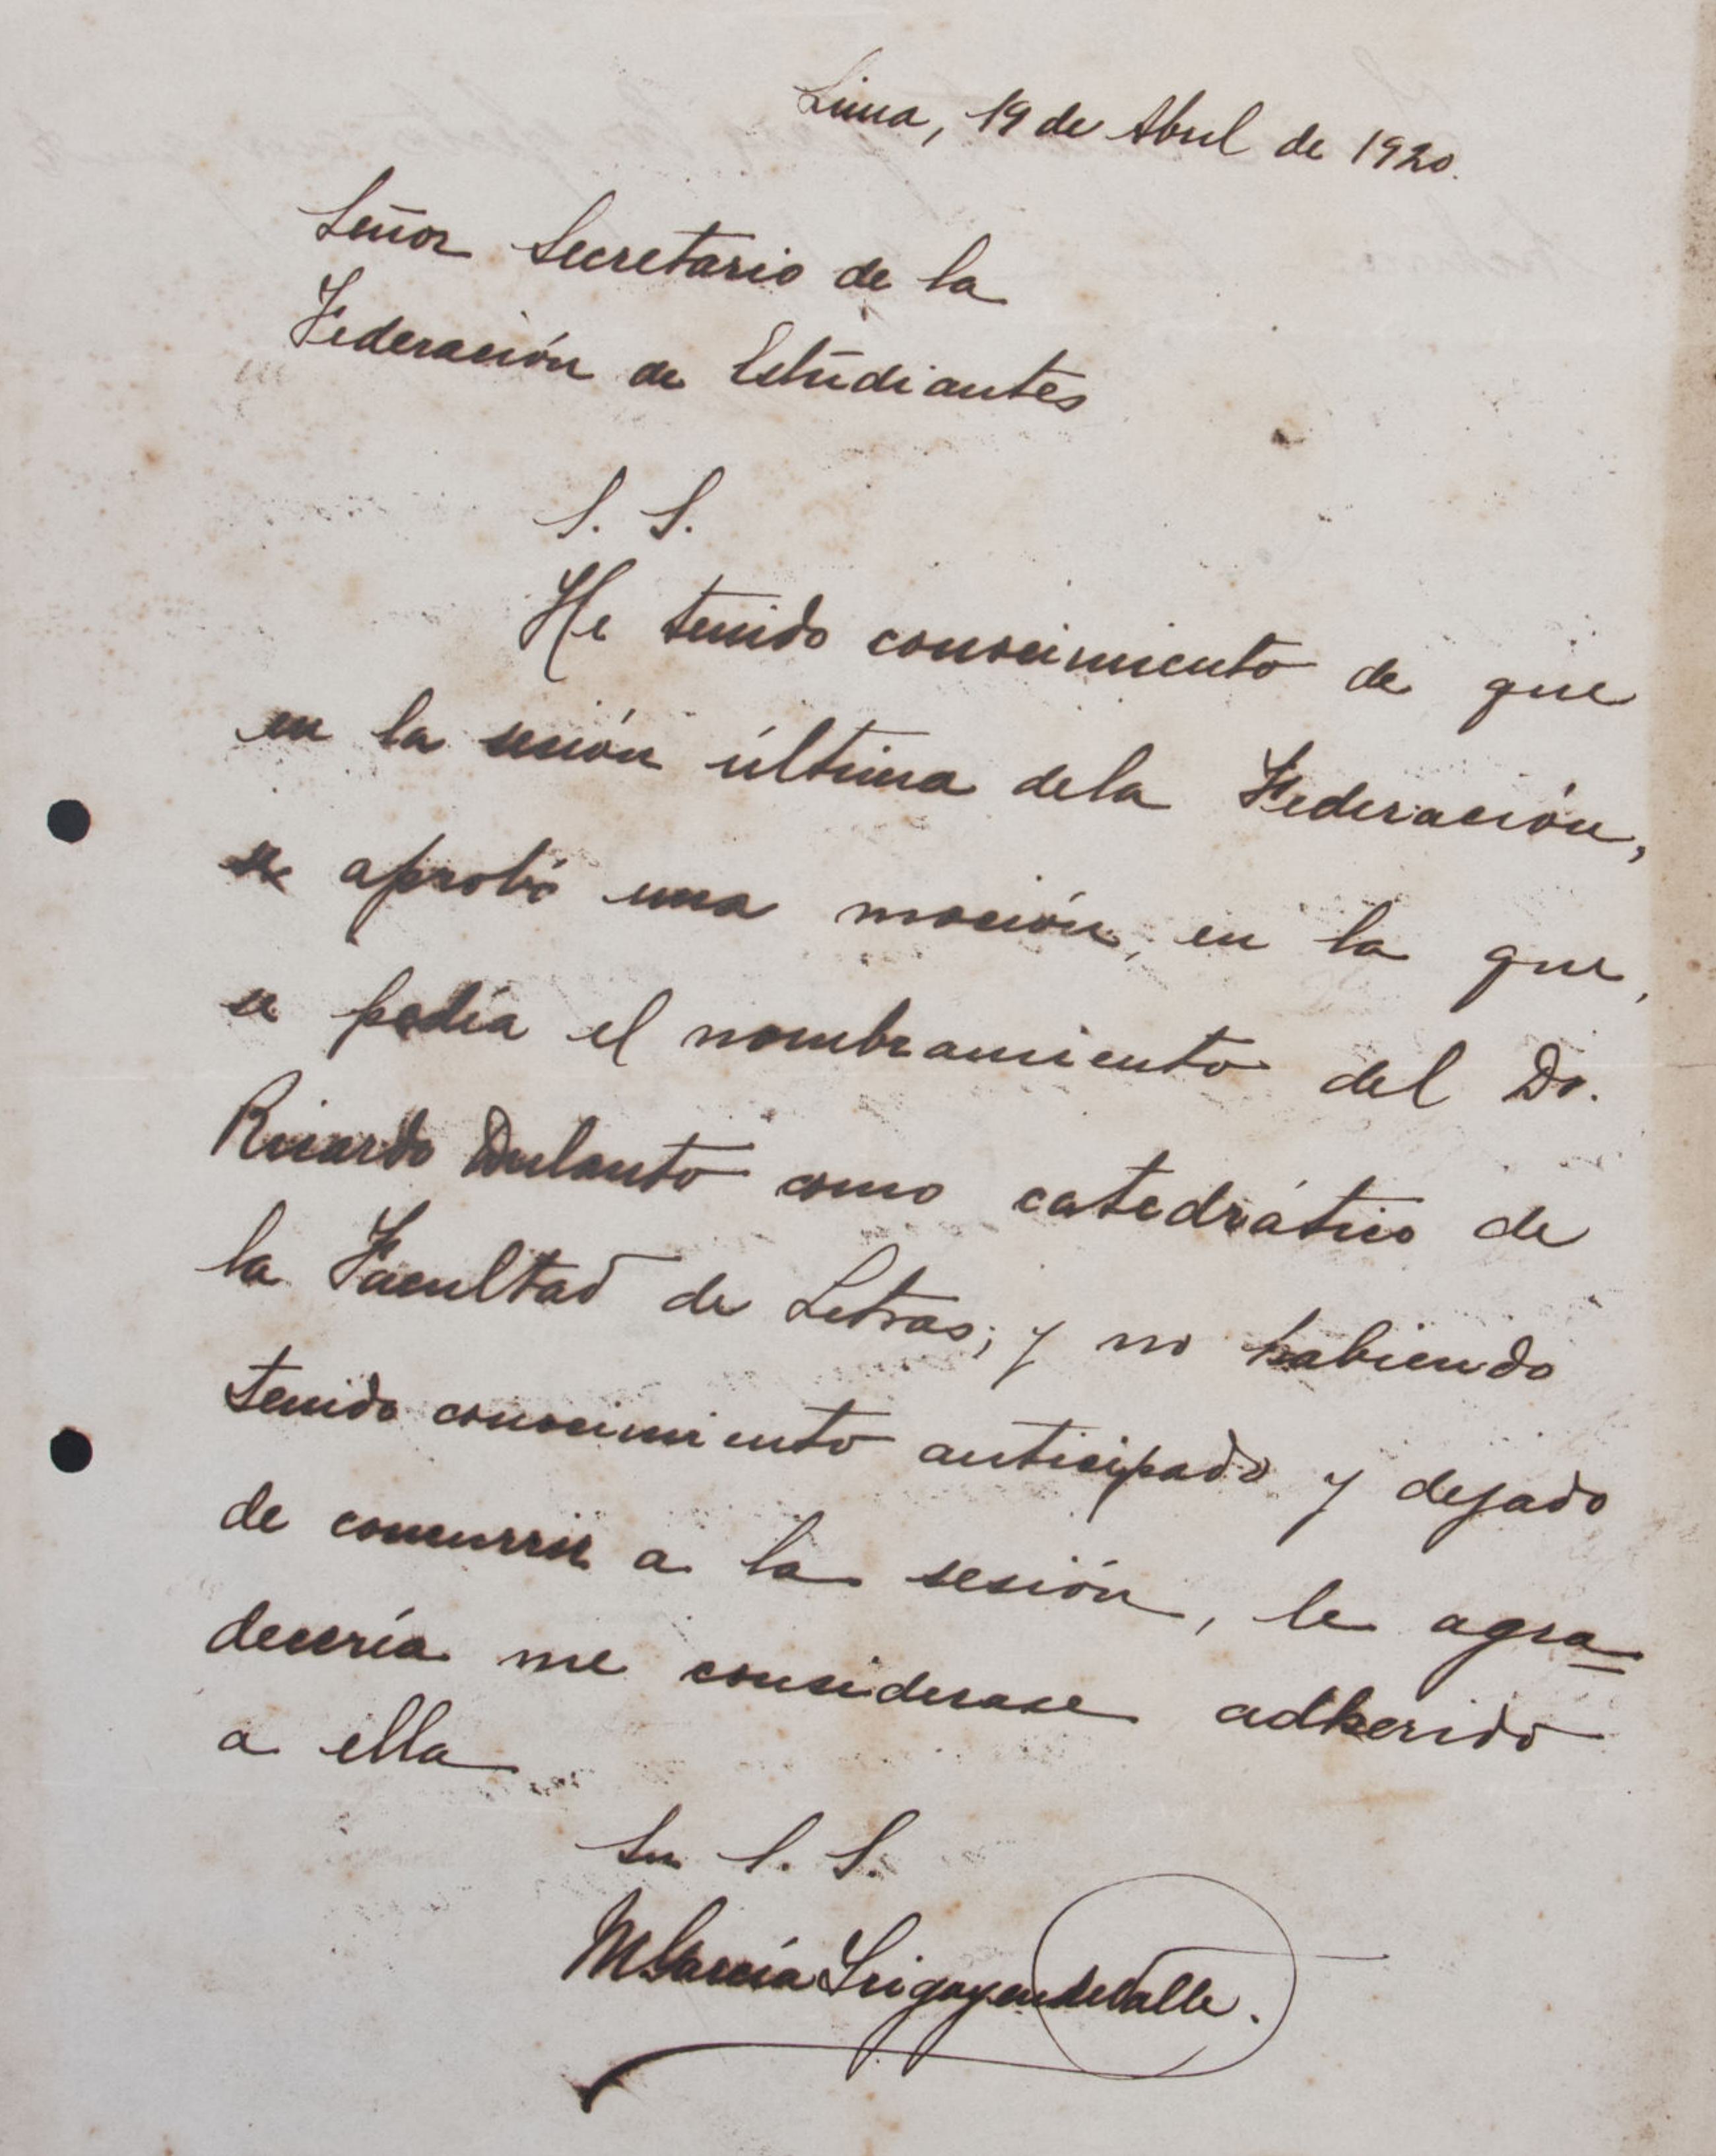 Lima, 19 de Abril de 1920.
Señor Secretario de la
Federación de Estudiantes
S. S.
He tenido conocimiento de que
en la sesión última dela Federación,
se aprobó una moción, en la que,
se pedía el nombramiento del Dr.
Ricardo Dulanto como catedrático de
la Facultad de Letras; y no habiendo
tenido conocimiento anticipado y dejado
de concurrir a la sesión, le agra-
decería me considerase adherido
a ella
Su S. S.
M García Irigoyen del Valle.